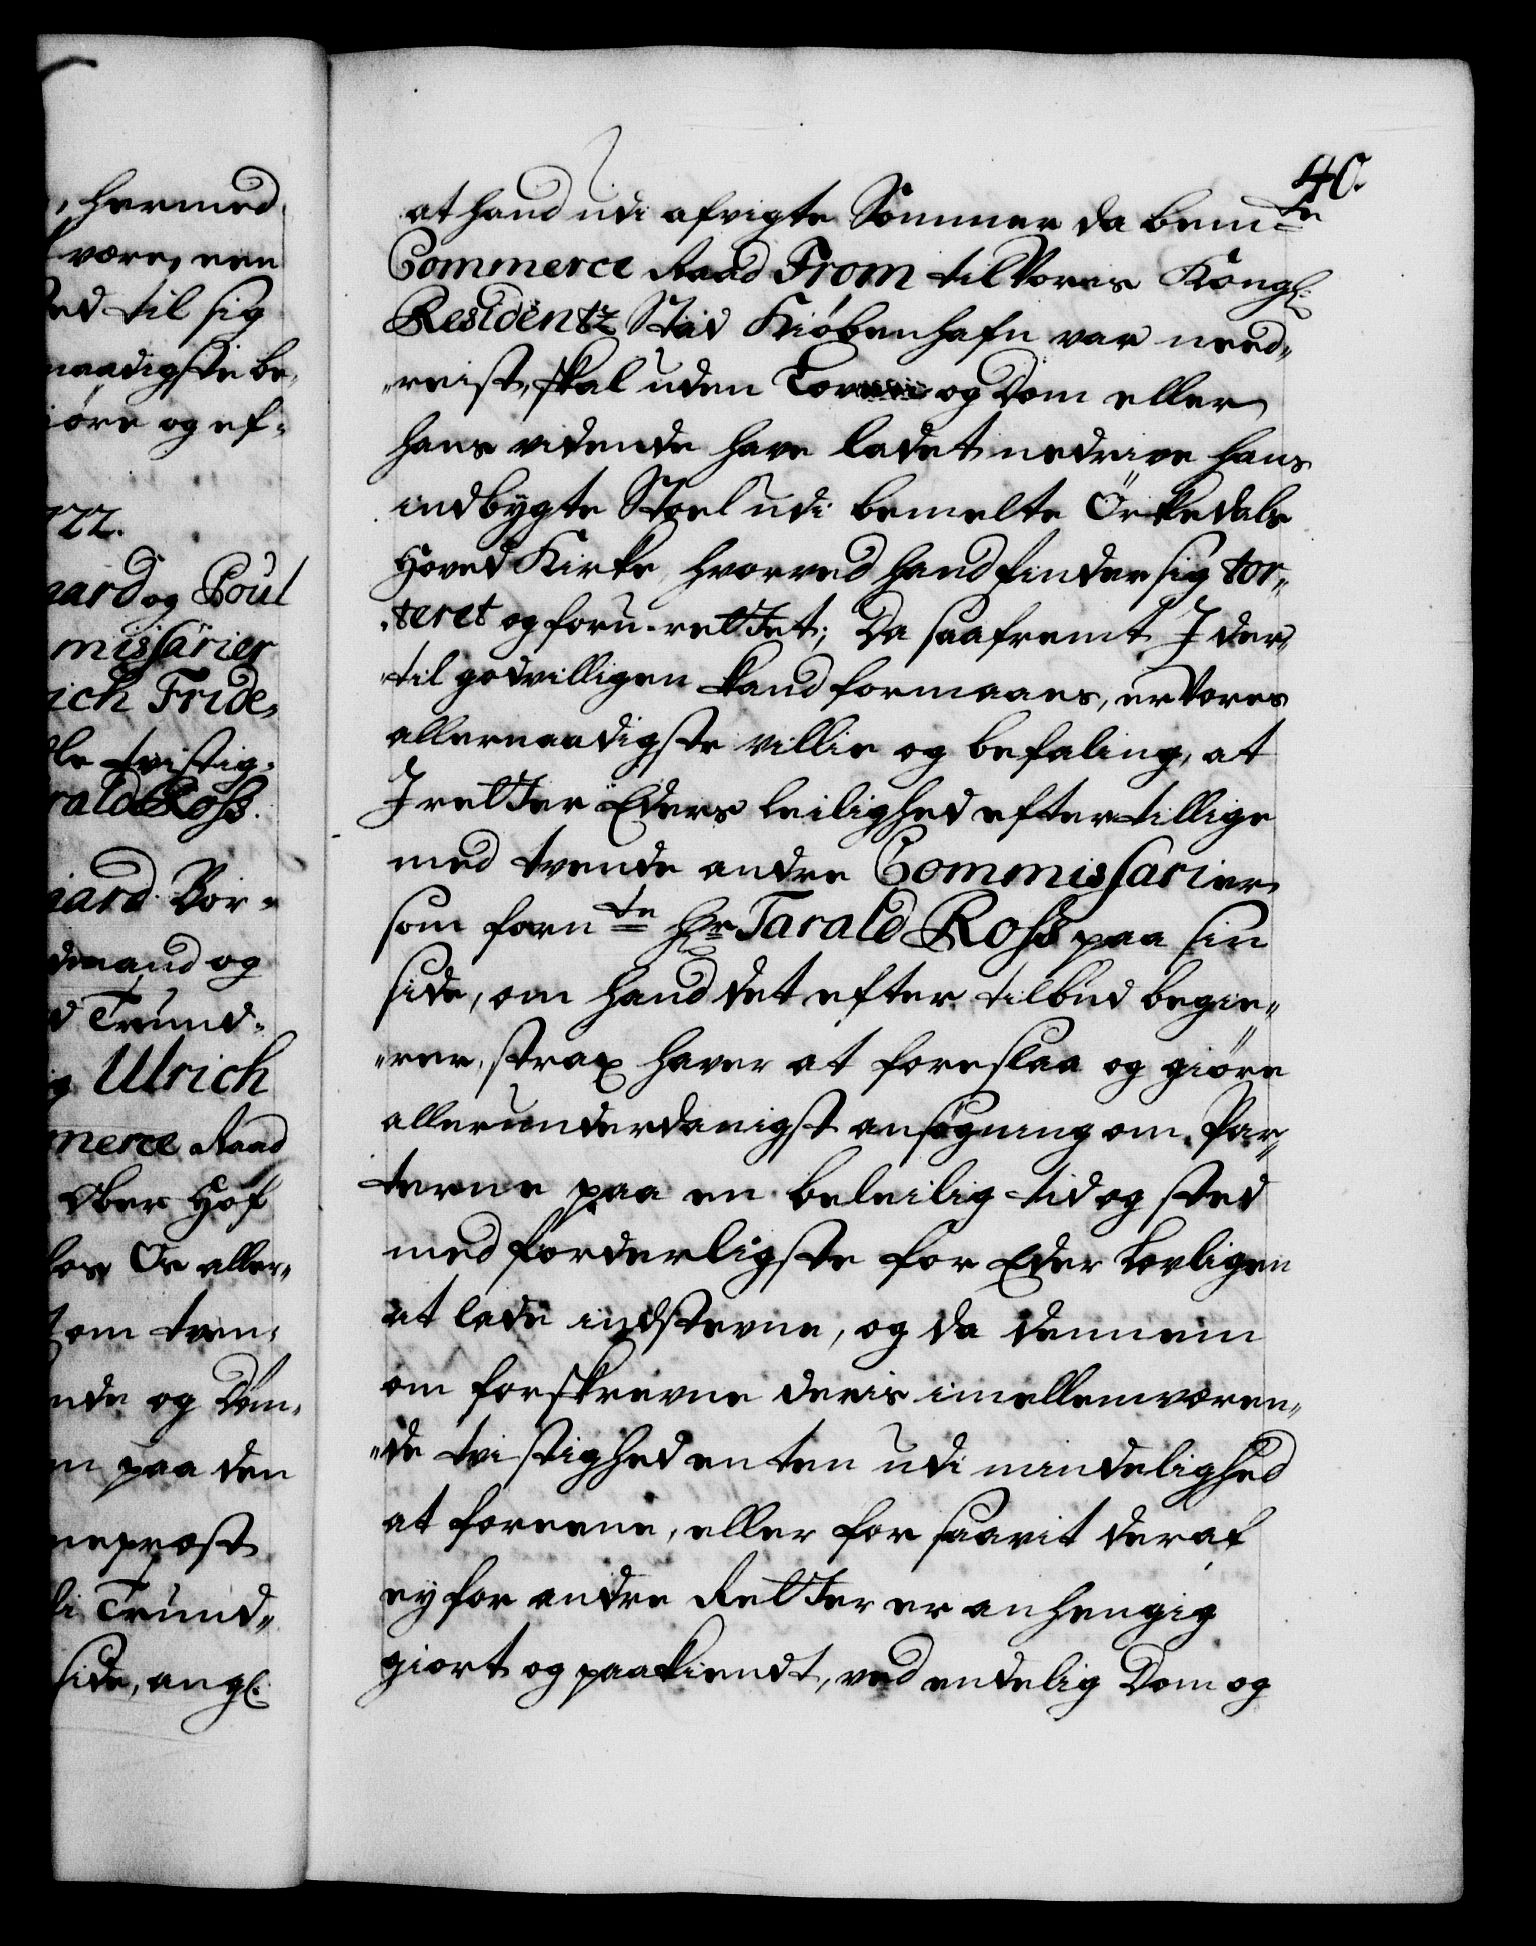 , hermed
være, een
ed til sig
naadigste be„
iøre og ef„
722.
aard og Poul
missarier
ich Fride„
le tvistig„
rald Ross.
iard Bor„
dmand og
d Trund„
g Ulrich
merce Raad
Ober Hof
for Os aller„
om tven„
nde og Døm„
n paa den
neprost
i Trund„
side, angl:
40.
at hand udi afvigte Sommer da bemte
Commerce Raad From til Vores Kongl:
Residentz Stad Kiøbenhafn var need„
„reist, skal uden Lov og Dom eller
hans vidende have ladet nedrive hans
indbygte Stoel udi bemelte Örkedals
Hoved Kirke, hvorved hand finder sig tor„
„teret og foru-rettet; Da saafremt I der„
„til godvilligen kand formaaes, er Vores
allernaadigste villie og befaling, at
I retter Eders leilighed efter tillige
med tvende andre Commissarier
som fornte Hr Tarald Ross paa sin
side, om hand det efter tilbud begie„
„rer, strax haver at foreslaa og giöre
allerunderdanigst ansøgning om, Par„
terne paa en beleilig tid og sted
med forderligste for Eder lovligen
at lade indstevne, og da dennem
om forskrevne deris imellemværen„
„de tvistighed enten udi mindelighed
at foreene, eller for saavit deraf
ey for andre Retter er anhengig
giort og paakiendt, ved endelig Dom og